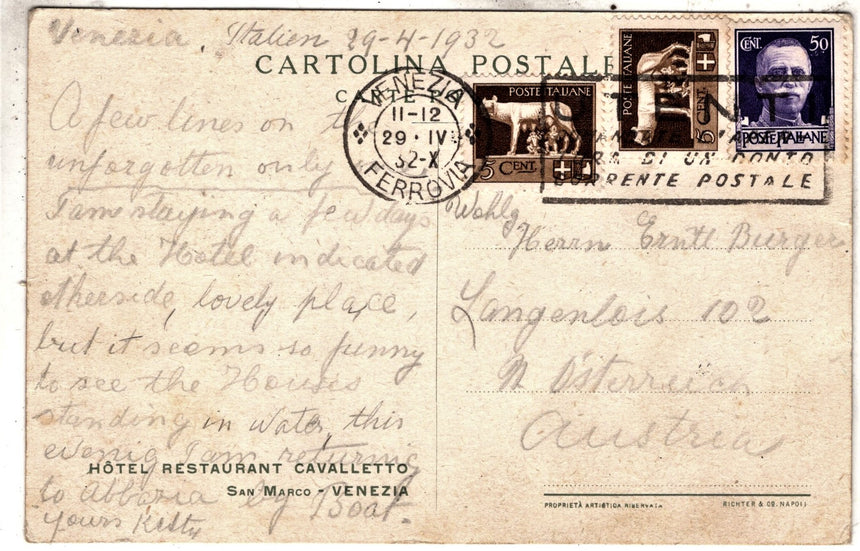 Venezia, Italien 29-4-1932
CARTOLINA POSTALE
VENEZIA
11-12
29·IV
32-X
FERROVIA
POSTE ITALIANE
5 CENT.
POSTE ITALIANE
5 CENT.
CENT. 50
POSTE ITALIANE
DI UN CONTO
CORRENTE POSTALE
A few lines on the
unforgotten only
I am staying a few days
at the Hotel indicated
otherside, lovely place,
but it seems so funny
to see the Houses
standing in water, this
evenig I am returnig
to Abbazia by Boat.
Yours
HÔTEL RESTAURANT CAVALLETTO
SAN MARCO - VENEZIA
Wohlg
Herrn Burger
Langenlois 102
N Österreich
Austria
PROPRIETÀ ARTISTICA RISERVATA
RICHTER & Co. NAPOLI